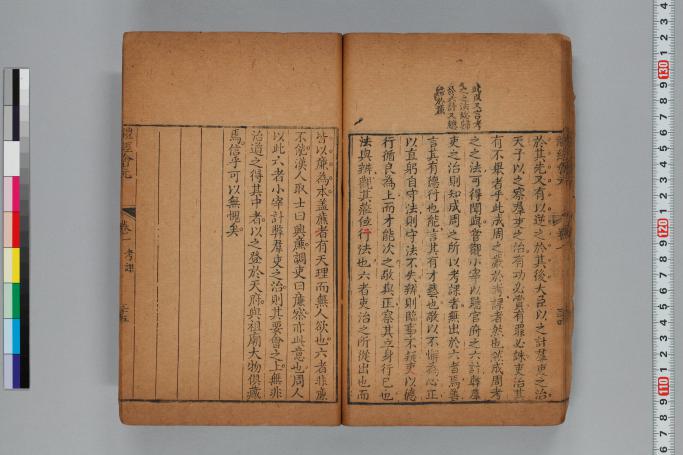 此段又言考
於其先又有以逆之於其後大臣以之計羣吏之治
天子以之察羣吏之治有功必賞有罪必誅吏治其
有不舉者乎此成周之嚴於考課者然也然成周考
之之法可得聞與嘗觀小宰以聽官府之六計弊羣
吏之治則知成周之所以考課者無出於六者焉善
言其有德行也能言其有才藝也敬以不懈為心正
以直躬自守法則守法不失辨則臨事不疑吏以德
行循良為上而才能次之敬與正察其立身行己也
法與辨觀其涖位行法也六者吏治之所從出也而
皆以廉為本蓋廉者有天理而無人欲也六者非廉
不能漢人取士曰興廉調吏曰廉察亦此意也周人
以此六者小宰計弊羣吏之治則其要會之上無非
治道之得其中者以之登於天府與祖廟大物俱藏
焉信乎可以無愧矣
禮經會元
卷一
考課